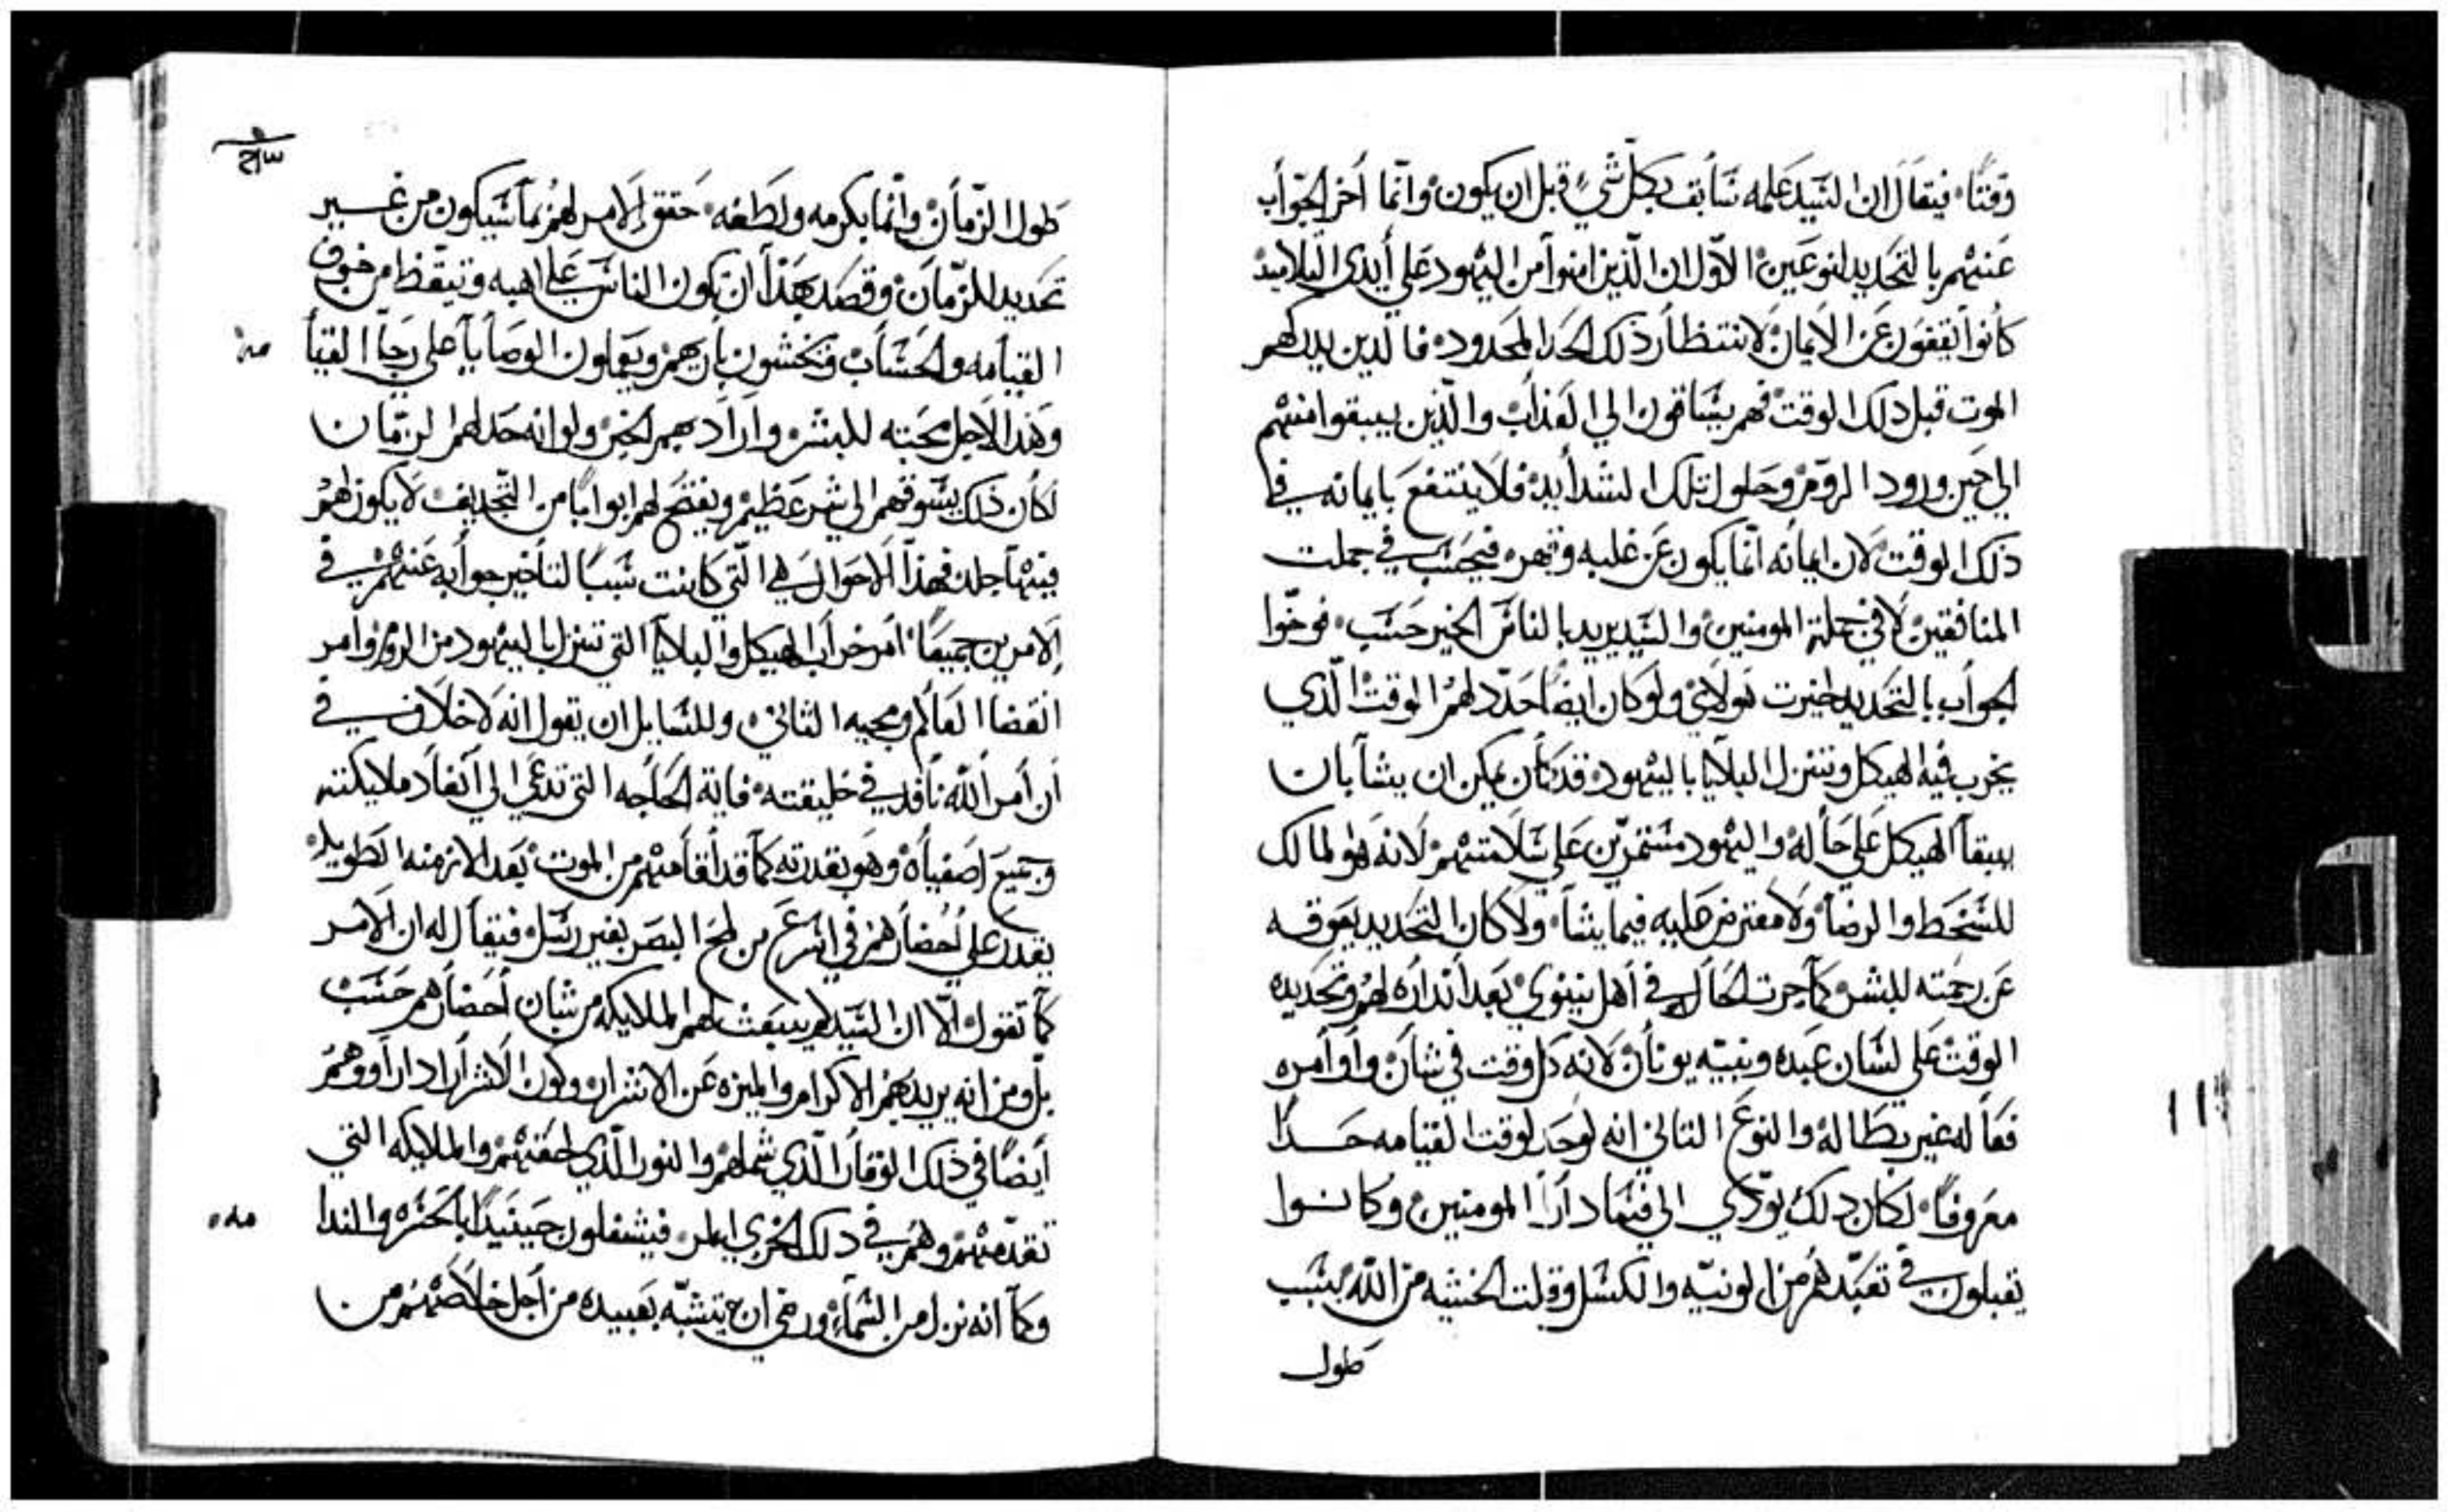 وقتًا فيقال ان السيد علمه سابق بكل شيء قبل ان يكون وانما أخر الجواب
عنهم بالتحديد لنوعين الاول ان الذين امنوا من اليهود على أيدي التلاميد
كانوا يقفون عن الايمان لانتظار ذلك الحد المحدود فالدين يدركهم
الموت قبل دلك الوقت فهم يساقون الي العذاب والذين يبقوا منهم
الي حين ورود الروم وحلول تلك الشدايد فلا ينتفع بايمانه في
ذلك الوقت لان ايمانه انما يكون عن غلبه وقهر فيحسب في جملت
المنافقين لا في جملة المومنين والسيد يريد بالناس الخير حسب فوخوا
الجواب بالتحديد لخيرت هولاي ولو كان ايضا حدد لهم الوقت الذي
يخرب فيه الهيكل وتنزل البلايا باليهود قد كان يمكن ان يشا بان
يبقا الهيكل على حاله واليهود مستمرين على سلامتهم لانه هو المالك
للسخط والرضا ولا معترض عليه فيما يشا ولا كان التحديد يعوقه
عن رحمته للبشر كما جرت الحال في أهل نينوي بعد انداره لهم وتحديده
الوقت على لسان عبده ونبيه يونان لانه كل وقت في شان وأوامره
فعاله غير بطاله والنوع التاني انه لو حد لوقت القيامه حدا
معروفا لكان دلك يودي الى فساد اراا المومنين وكانوا
يقبلون في تعبدهم من الونيه والكسل وقلت الخشيه من الله بسبب
طول
ص٣
طول الزمان وانما بكرمه ولطفه حقق الامر لهم بما سيكون من غير
تحديد للزمان وقصد بهذا ان تكون الناس على اهبه وتيقظ من خوف
القيامه والحساب فيخشون باريهم ويعملون الوصايا على رجا القيا مه
وهذا لاجل محبته للبشر واراد بهم الخير ولو انه حد لهم الزمان
لكان ذلك يسوقهم الى شر عظيم ويفتح لهم ابوابا من التجديف لا يكون لهم
فيها جلد فهذا الاحوال هي التي كانت سببا لتأخير جوابه عنهم في
الامرين جميعا امر خراب الهيكل والبلايا التي تنزل باليهود من الروم وامر
انقضا العالم ومجيه الثاني وللسايل ان يقول انه لا خلاف في
ان أمر الله نافد في خليقته فاية الحاجه التي تدعي الي انفاد ملايكته
وجميع اصفياه وهو بقدرته كما قد اقامهم من الموت بعد الازمنه الطويله
يقدر علي احضارهم في اسرع من لمح البصر بغير رسل فيقال له ان الامر
كما تقول الا ان السيد لم يبعث لهم الملايكه من شان احضارهم حسب
بل ومن انه يريد لهم الاكرام والميزه عن الاشرار وكون الاشرار ادا راووهم
أيضًا في ذلك الوقار الذي شملهم والنور الذي لحقهم والملايكه التي
تقدمهم وهم في دلك الخزي المر فيشغلون حينيدا بالحسره والندا مه
وكما انه نزل من السماء ورضي ان يتشبه بعبيده من أجل خلاصهم من